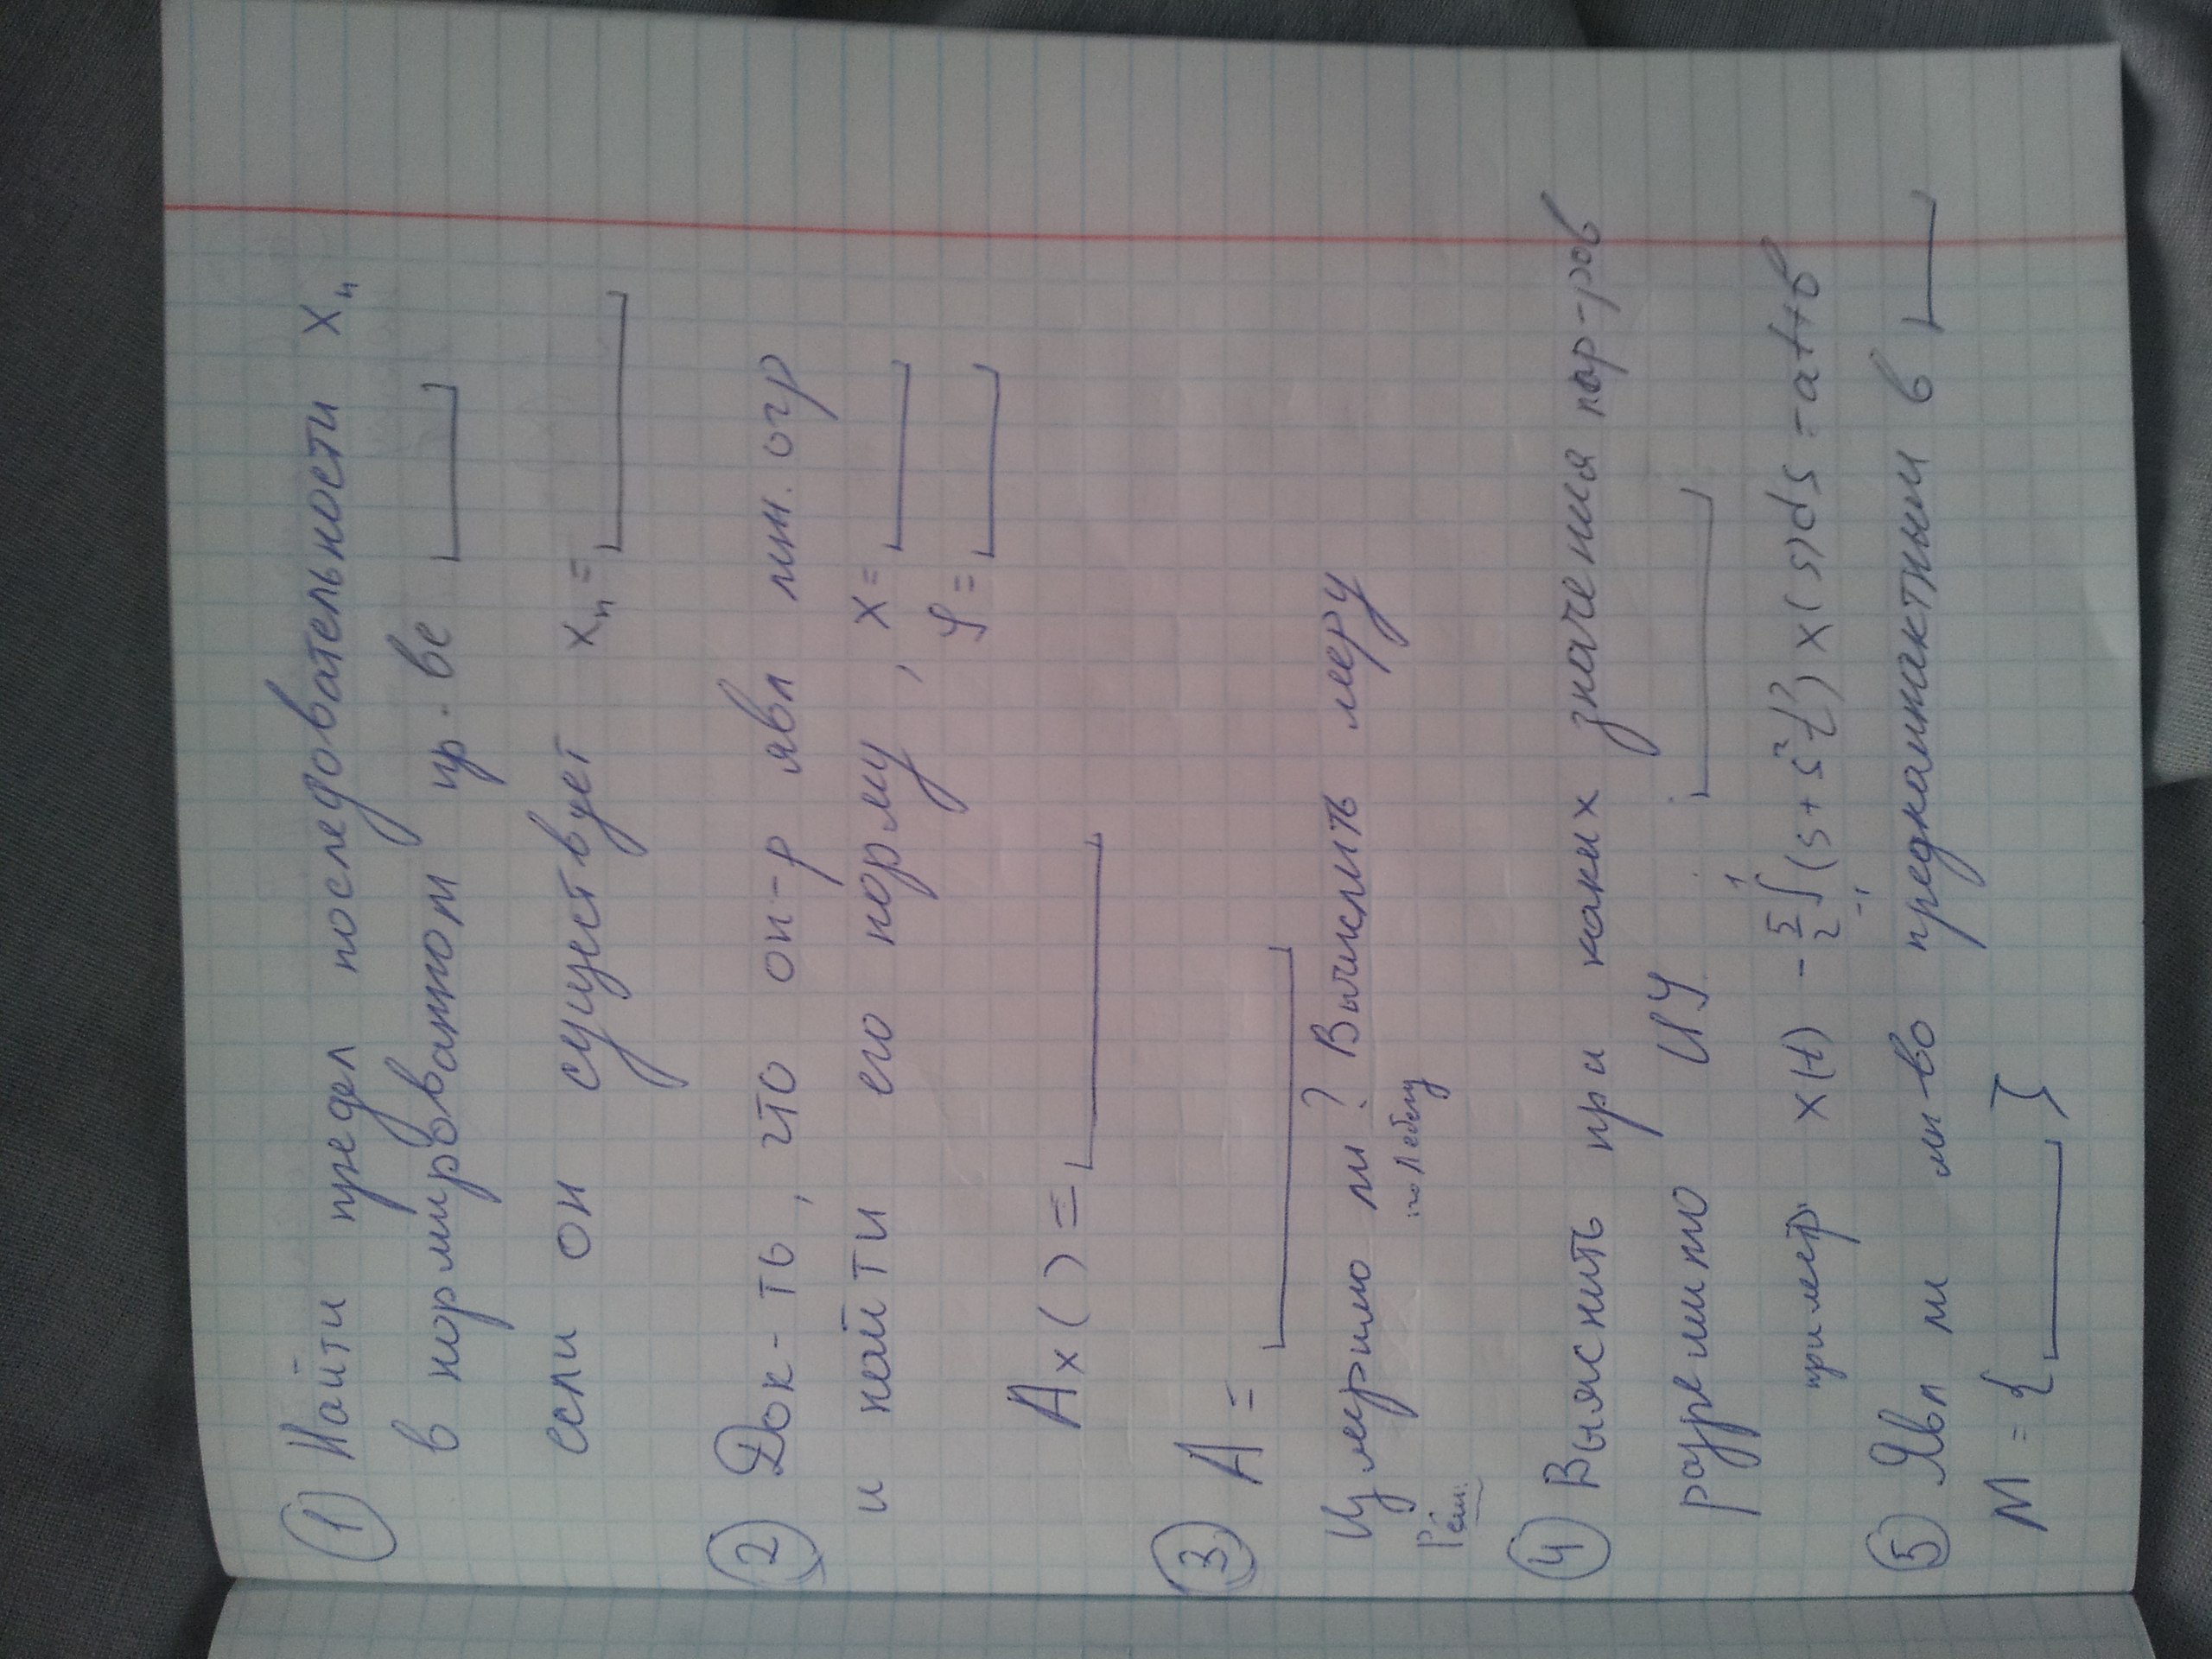 ① Найти предел последовательности xₙ
в нормированном пр-ве ⌊____⌋
если он существует xₙ = ⌊____⌋
② Док-ть, что оп-р явл лин. огр
и найти его норму, x = ⌊____⌋
y = ⌊____⌋
Ax( ) = ⌊____⌋
③ A = ⌊____⌋
Измеримо ли? Вычислить меру
по Лебегу
④ Выяснить при каких значения пар-ров
разрешимо ИУ ⌊____⌋
пример x(t) - 5/2 ∫₋₁¹ (s + s²t²) x(s)ds = at+b
⑤ Явл ли мн-во предкомпактным в ⌊____⌋
M = { ⌊____⌋ }